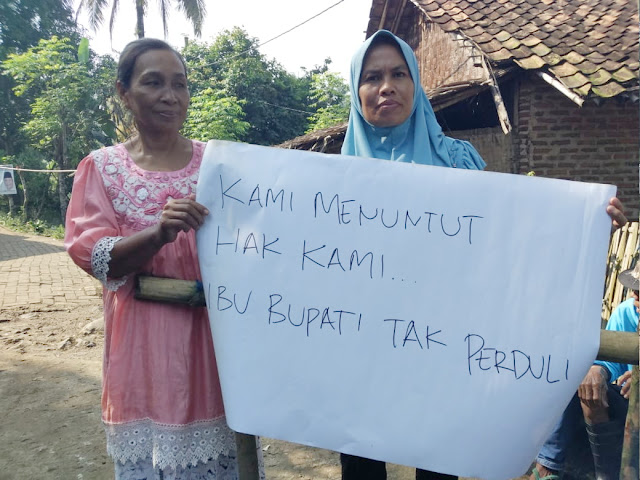 KAMI MENUNTUT
HAK KAMI...
IBU BUPATI TAK PERDULI